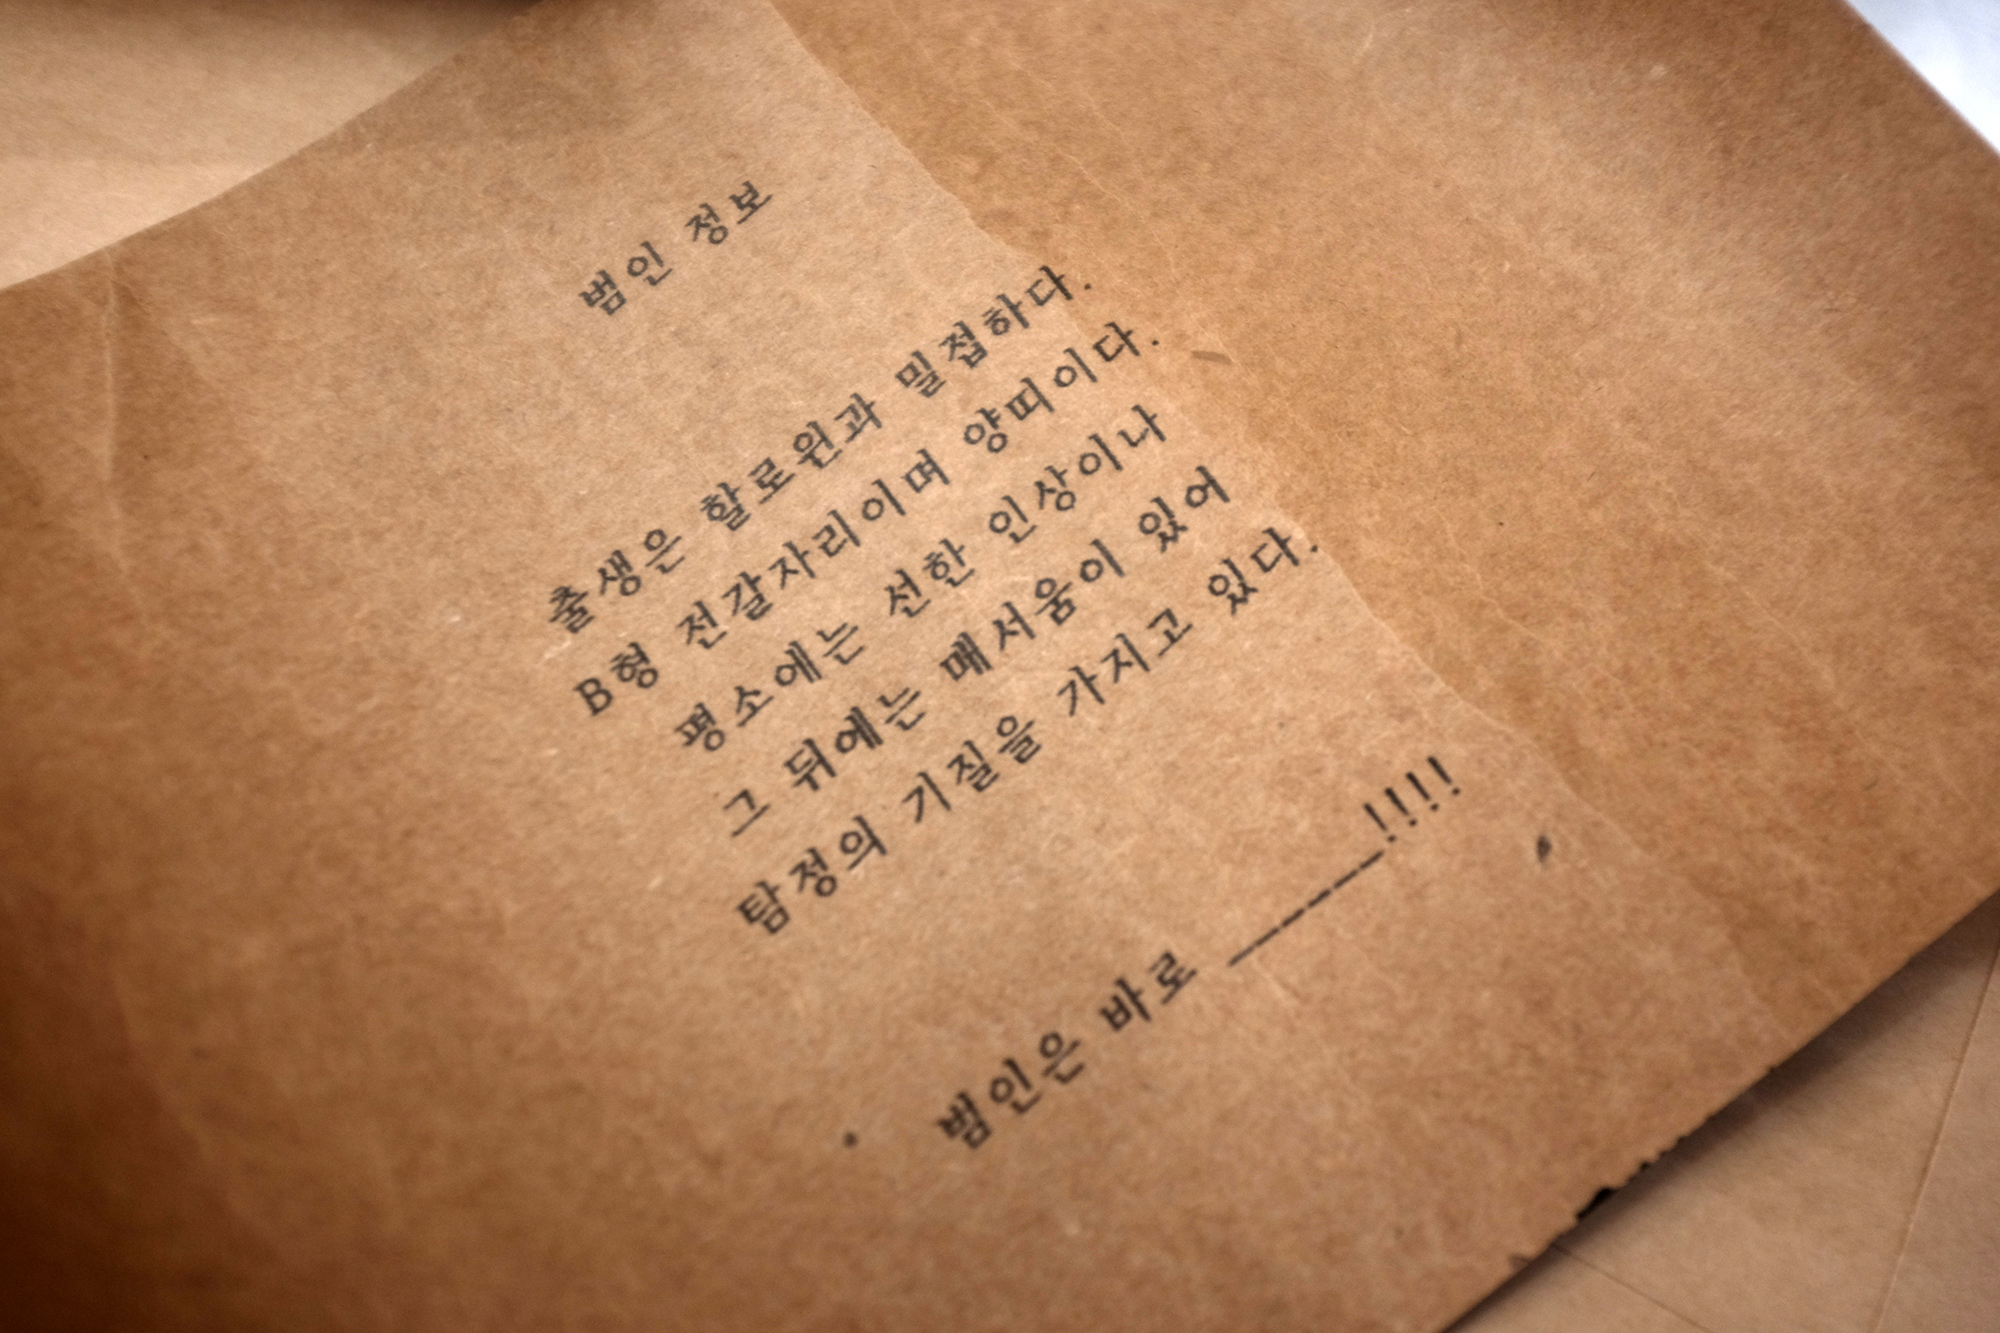 범인 정보
출생은 할로윈과 밀접하다.
B형 전갈자리이며 양띠이다.
평소에는 선한 인상이나
그 뒤에는 매서움이 있어
탐정의 기질을 가지고 있다.
범인은 바로 ______!!!!